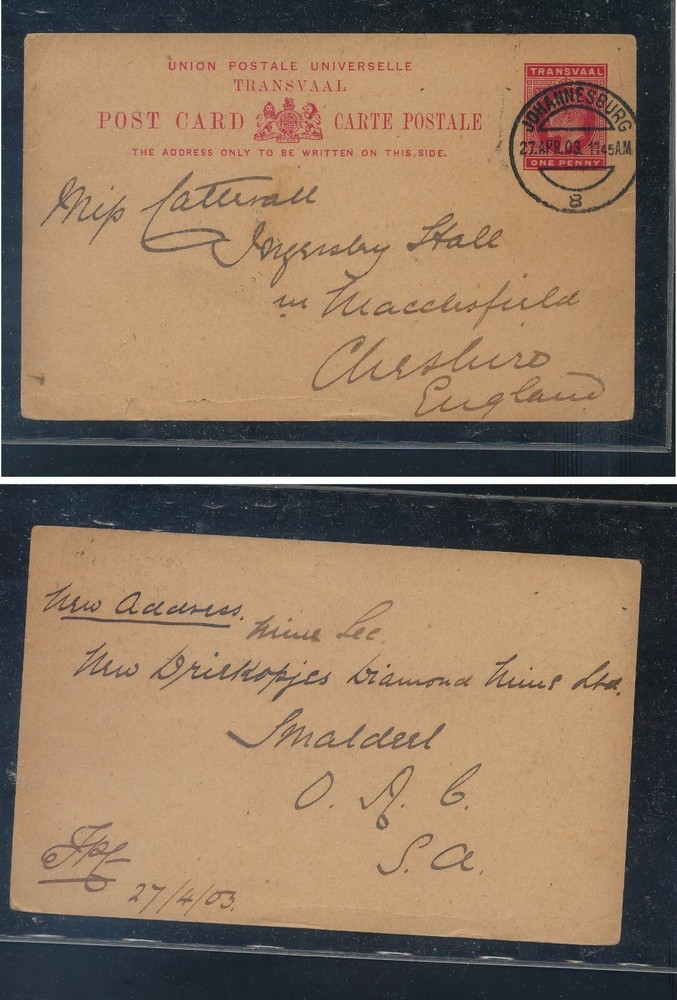 UNION POSTALE UNIVERSELLE
TRANSVAAL
POST CARD CARTE POSTALE
THE ADDRESS ONLY TO BE WRITTEN ON THIS SIDE.
TRANSVAAL
ONE PENNY
JOHANNESBURG
27.APR.03. 11 45 AM
8
Miss Catterall
Ingersby Hall
in Macclesfield
Cheshire
England
New Address.
Mine Sec.
New Driekopjes Diamond Mine Ltd.
Smaldeel
O. R. C.
S. A.
27/4/03.